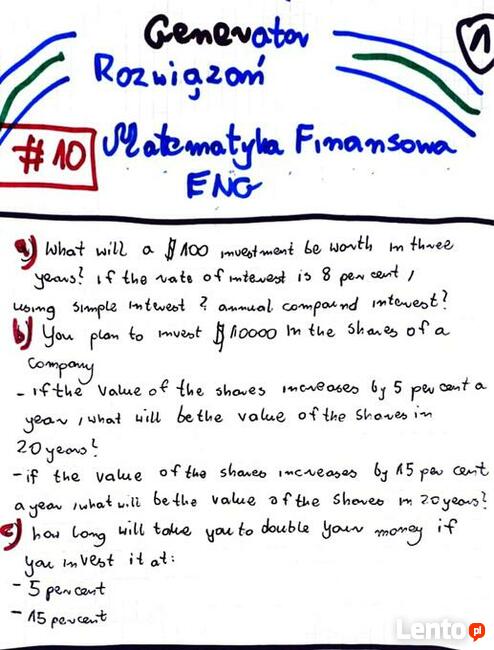 Generator
1
Rozwiązań
#10 Matematyka Finansowa
ENG
a) What will a $100 investment be worth in three
years? if the rate of interest is 8 per cent,
using simple interest? annual compound interest?
b) You plan to invest $10000 in the shares of a
company
- if the value of the shares increases by 5 per cent a
year, what will be the value of the shares in
20 years?
- if the value of the shares increases by 15 per cent
a year, what will be the value of the shares in 20 years?
c) how long will take you to double your money if
you invest it at:
- 5 percent
- 15 percent
Lento.pl